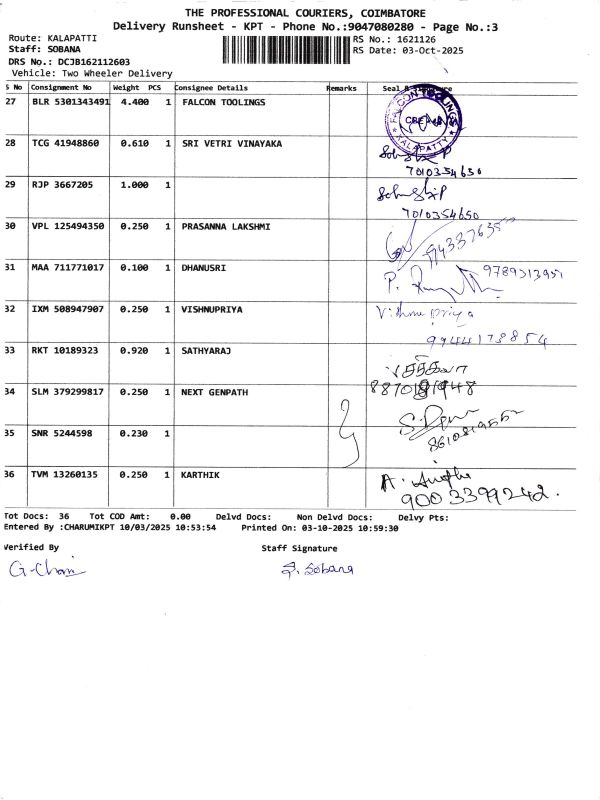 THE PROFESSIONAL COURIERS, COIMBATORE
Delivery Runsheet - KPT - Phone No.:9047080280 - Page No.:3
Route: KALAPATTI
RS No.: 1621126
Staff: SOBANA
RS Date: 03-Oct-2025
DRS No.: DCJB162112603
Vehicle: Two Wheeler Delivery
S No Consignment No Weight PCS Consignee Details Remarks Seal &
27 BLR 5301343491 4.400 1 FALCON TOOLINGS
FALCON TOOLINGS
KALAPATTY
28 TCG 41948860 0.610 1 SRI VETRI VINAYAKA
7010354650
29 RJP 3667205 1.000 1
7010354650
30 VPL 125494350 0.250 1 PRASANNA LAKSHMI
31 MAA 711771017 0.100 1 DHANUSRI
9789313951
32 IXM 508947907 0.250 1 VISHNUPRIYA
Vishnu priya
9944173854
33 RKT 10189323 0.920 1 SATHYARAJ
34 SLM 379299817 0.250 1 NEXT GENPATH
35 SNR 5244598 0.230 1
36 TVM 13260135 0.250 1 KARTHIK
9003399242.
Tot Docs: 36 Tot COD Amt: 0.00 Delvd Docs: Non Delvd Docs: Delvy Pts:
Entered By :CHARUMIKPT 10/03/2025 10:53:54 Printed On: 03-10-2025 10:59:30
Verified By Staff Signature
S. Sobana